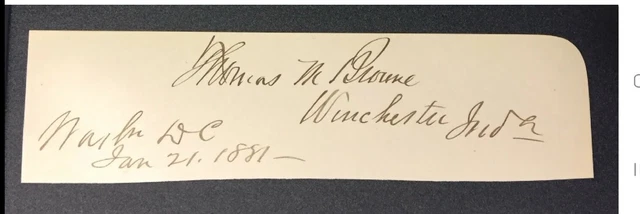 Thomas M Browne
Winchester Inda
Washn DC
Jan 21. 1881 —